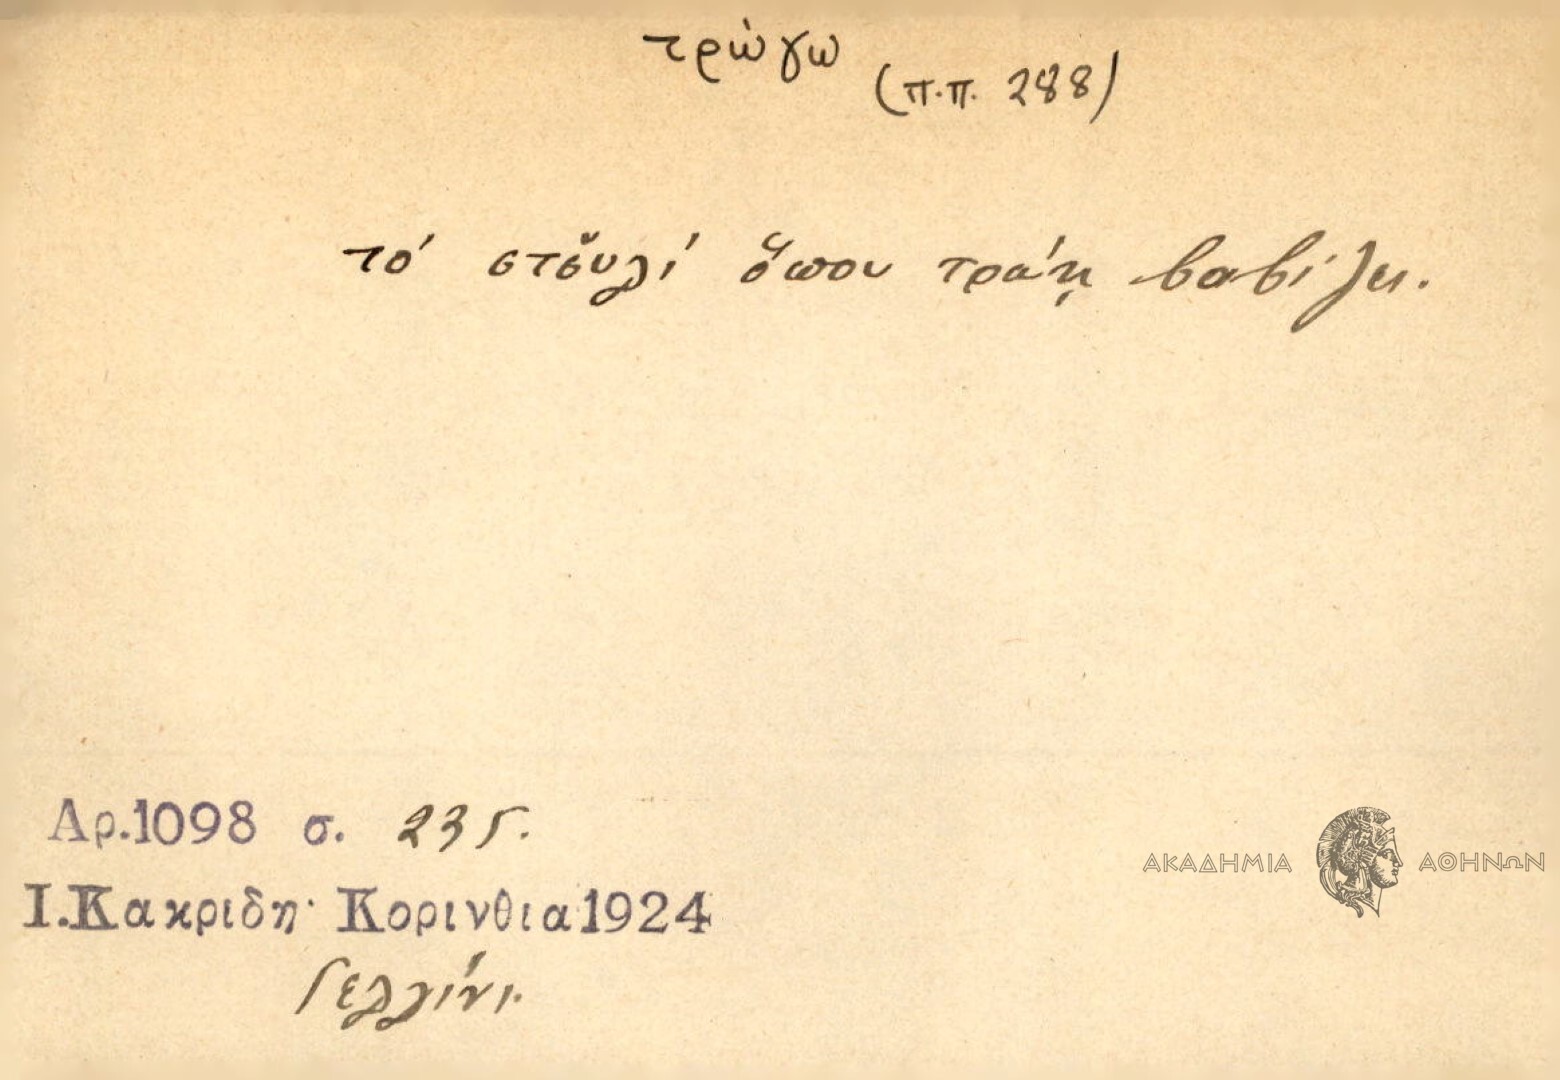 τρώγω
(π.π. 288)
τό στσ̆υλί ὅπου τράῃ βαβίζει.
Αρ.1098 σ. 235.
Ι.Κακριδη· Κορινθια 1924
Γελλίνι.
ΑΚΑΔΗΜΙΑ ΑΘΗΝΩΝ